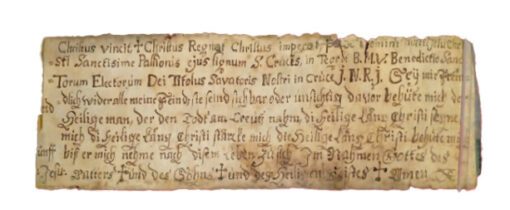 Christus vincit ✝ Christus Regnat Christus imperat
sti Sanctissime Passionis ejus signum S. Crucis, in Regno B.M.V. Benedicte Sanc
Torum Electorum Dei Titolus Savatoris Nostri in Cruce J. N. R. J. Seÿ mir
dlich wider alle meine Feind, sie seind sichbar oder unsichtig davor behüte mich de
Heilige man, der den Todt am Creutz nahm, di Heilige Läng Christi
mich di Heilige Läng Christi stärcke mich die Heilige Läng Christi behüte
biß er mich nehme nach disem Leben zu sich Jm Nahmen Gottes des
Vatters ✝ und des Sohns ✝ und des Heiligen Geistes ✝ Amen